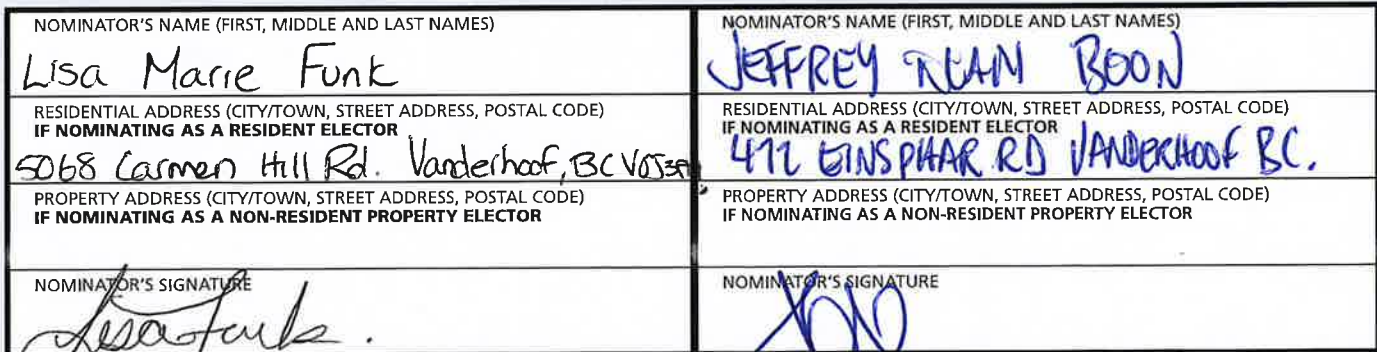 NOMINATOR'S NAME (FIRST, MIDDLE AND LAST NAMES)
Lisa Marie Funk
RESIDENTIAL ADDRESS (CITY/TOWN, STREET ADDRESS, POSTAL CODE)
IF NOMINATING AS A RESIDENT ELECTOR
5068 Carmen Hill Rd. Vanderhoof, BC V0J3A1
PROPERTY ADDRESS (CITY/TOWN, STREET ADDRESS, POSTAL CODE)
IF NOMINATING AS A NON-RESIDENT PROPERTY ELECTOR
NOMINATOR'S SIGNATURE
Lisa Funk.
NOMINATOR'S NAME (FIRST, MIDDLE AND LAST NAMES)
JEFFREY BOON
RESIDENTIAL ADDRESS (CITY/TOWN, STREET ADDRESS, POSTAL CODE)
IF NOMINATING AS A RESIDENT ELECTOR
EINSPHAR RD VANDERHOOF BC.
PROPERTY ADDRESS (CITY/TOWN, STREET ADDRESS, POSTAL CODE)
IF NOMINATING AS A NON-RESIDENT PROPERTY ELECTOR
NOMINATOR'S SIGNATURE